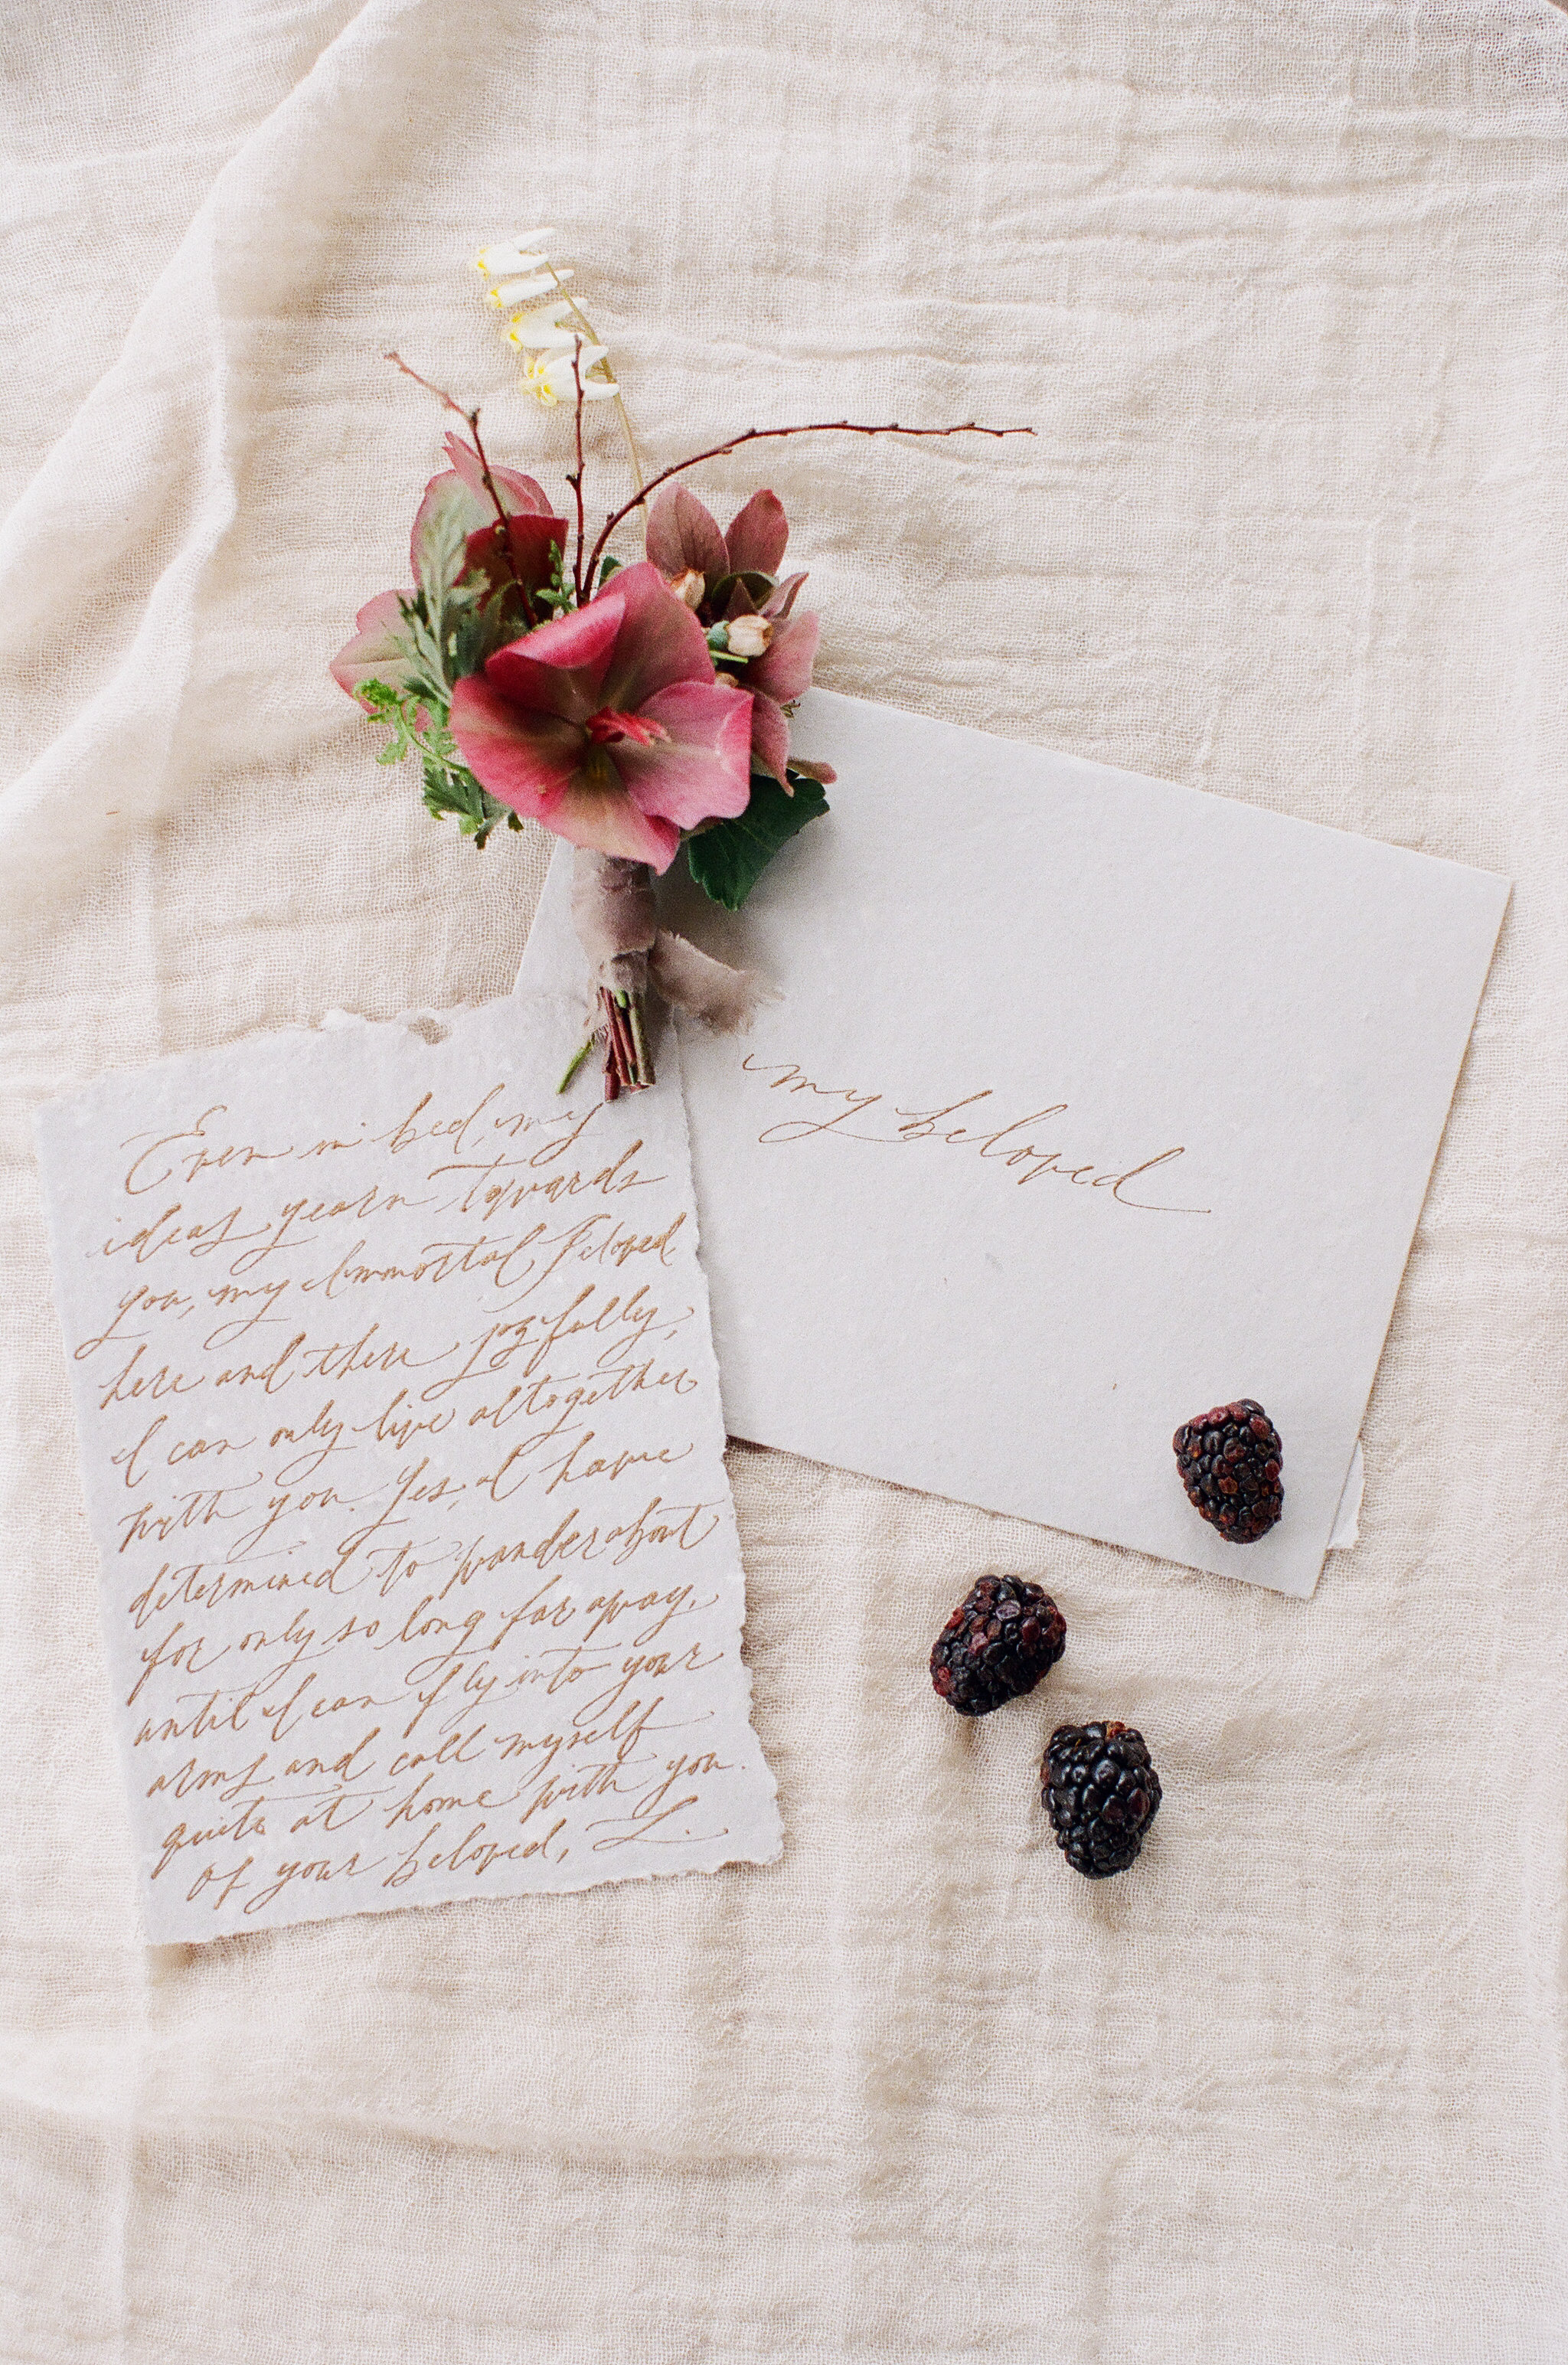 Even in bed, my
ideas yearn towards
you, my Immortal Beloved
here and there joyfully,
I can only live altogether
with you. Yes, I have
determined to wander about
for only so long far away,
until I can fly into your
arms and call myself
quite at home with you.
Of your beloved, L.
my beloved